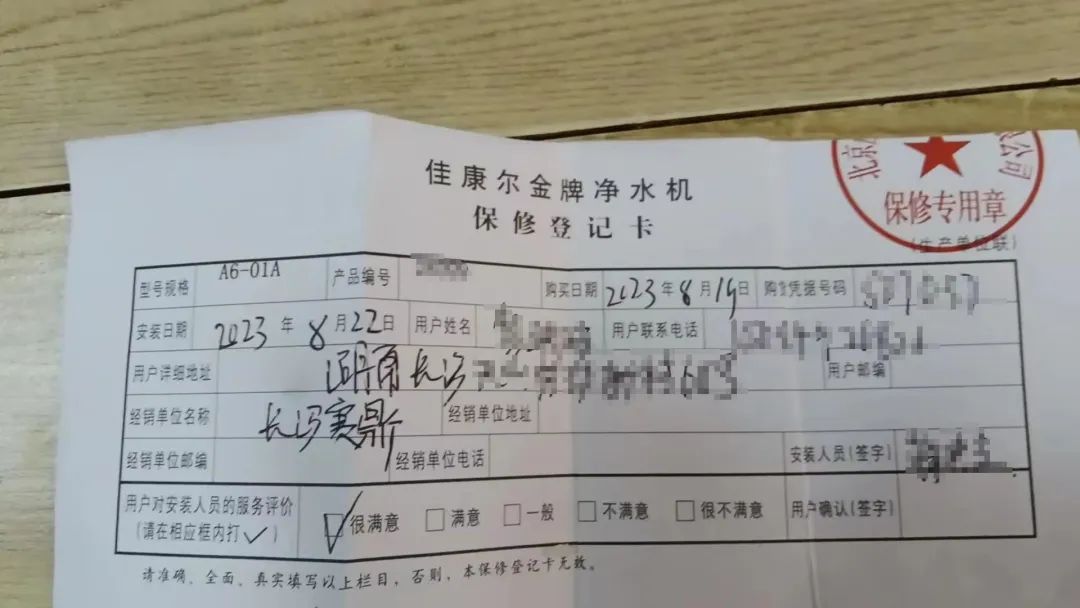 佳康尔金牌净水机
保修登记卡
北京 公司
保修专用章
(生产单位联)
型号规格 A6-01A 产品编号 购买日期 2023年8月19日 购货凭据号码
安装日期 2023年8月22日 用户姓名 用户联系电话
用户详细地址 湖南长沙 用户邮编
经销单位名称 长沙赛鼎 经销单位地址
经销单位邮编 经销单位电话 安装人员(签字)
用户对安装人员的服务评价 很满意 满意 一般 不满意 很不满意 用户确认(签字)
(请在相应框内打✓)
请准确、全面、真实填写以上栏目，否则，本保修登记卡无效。